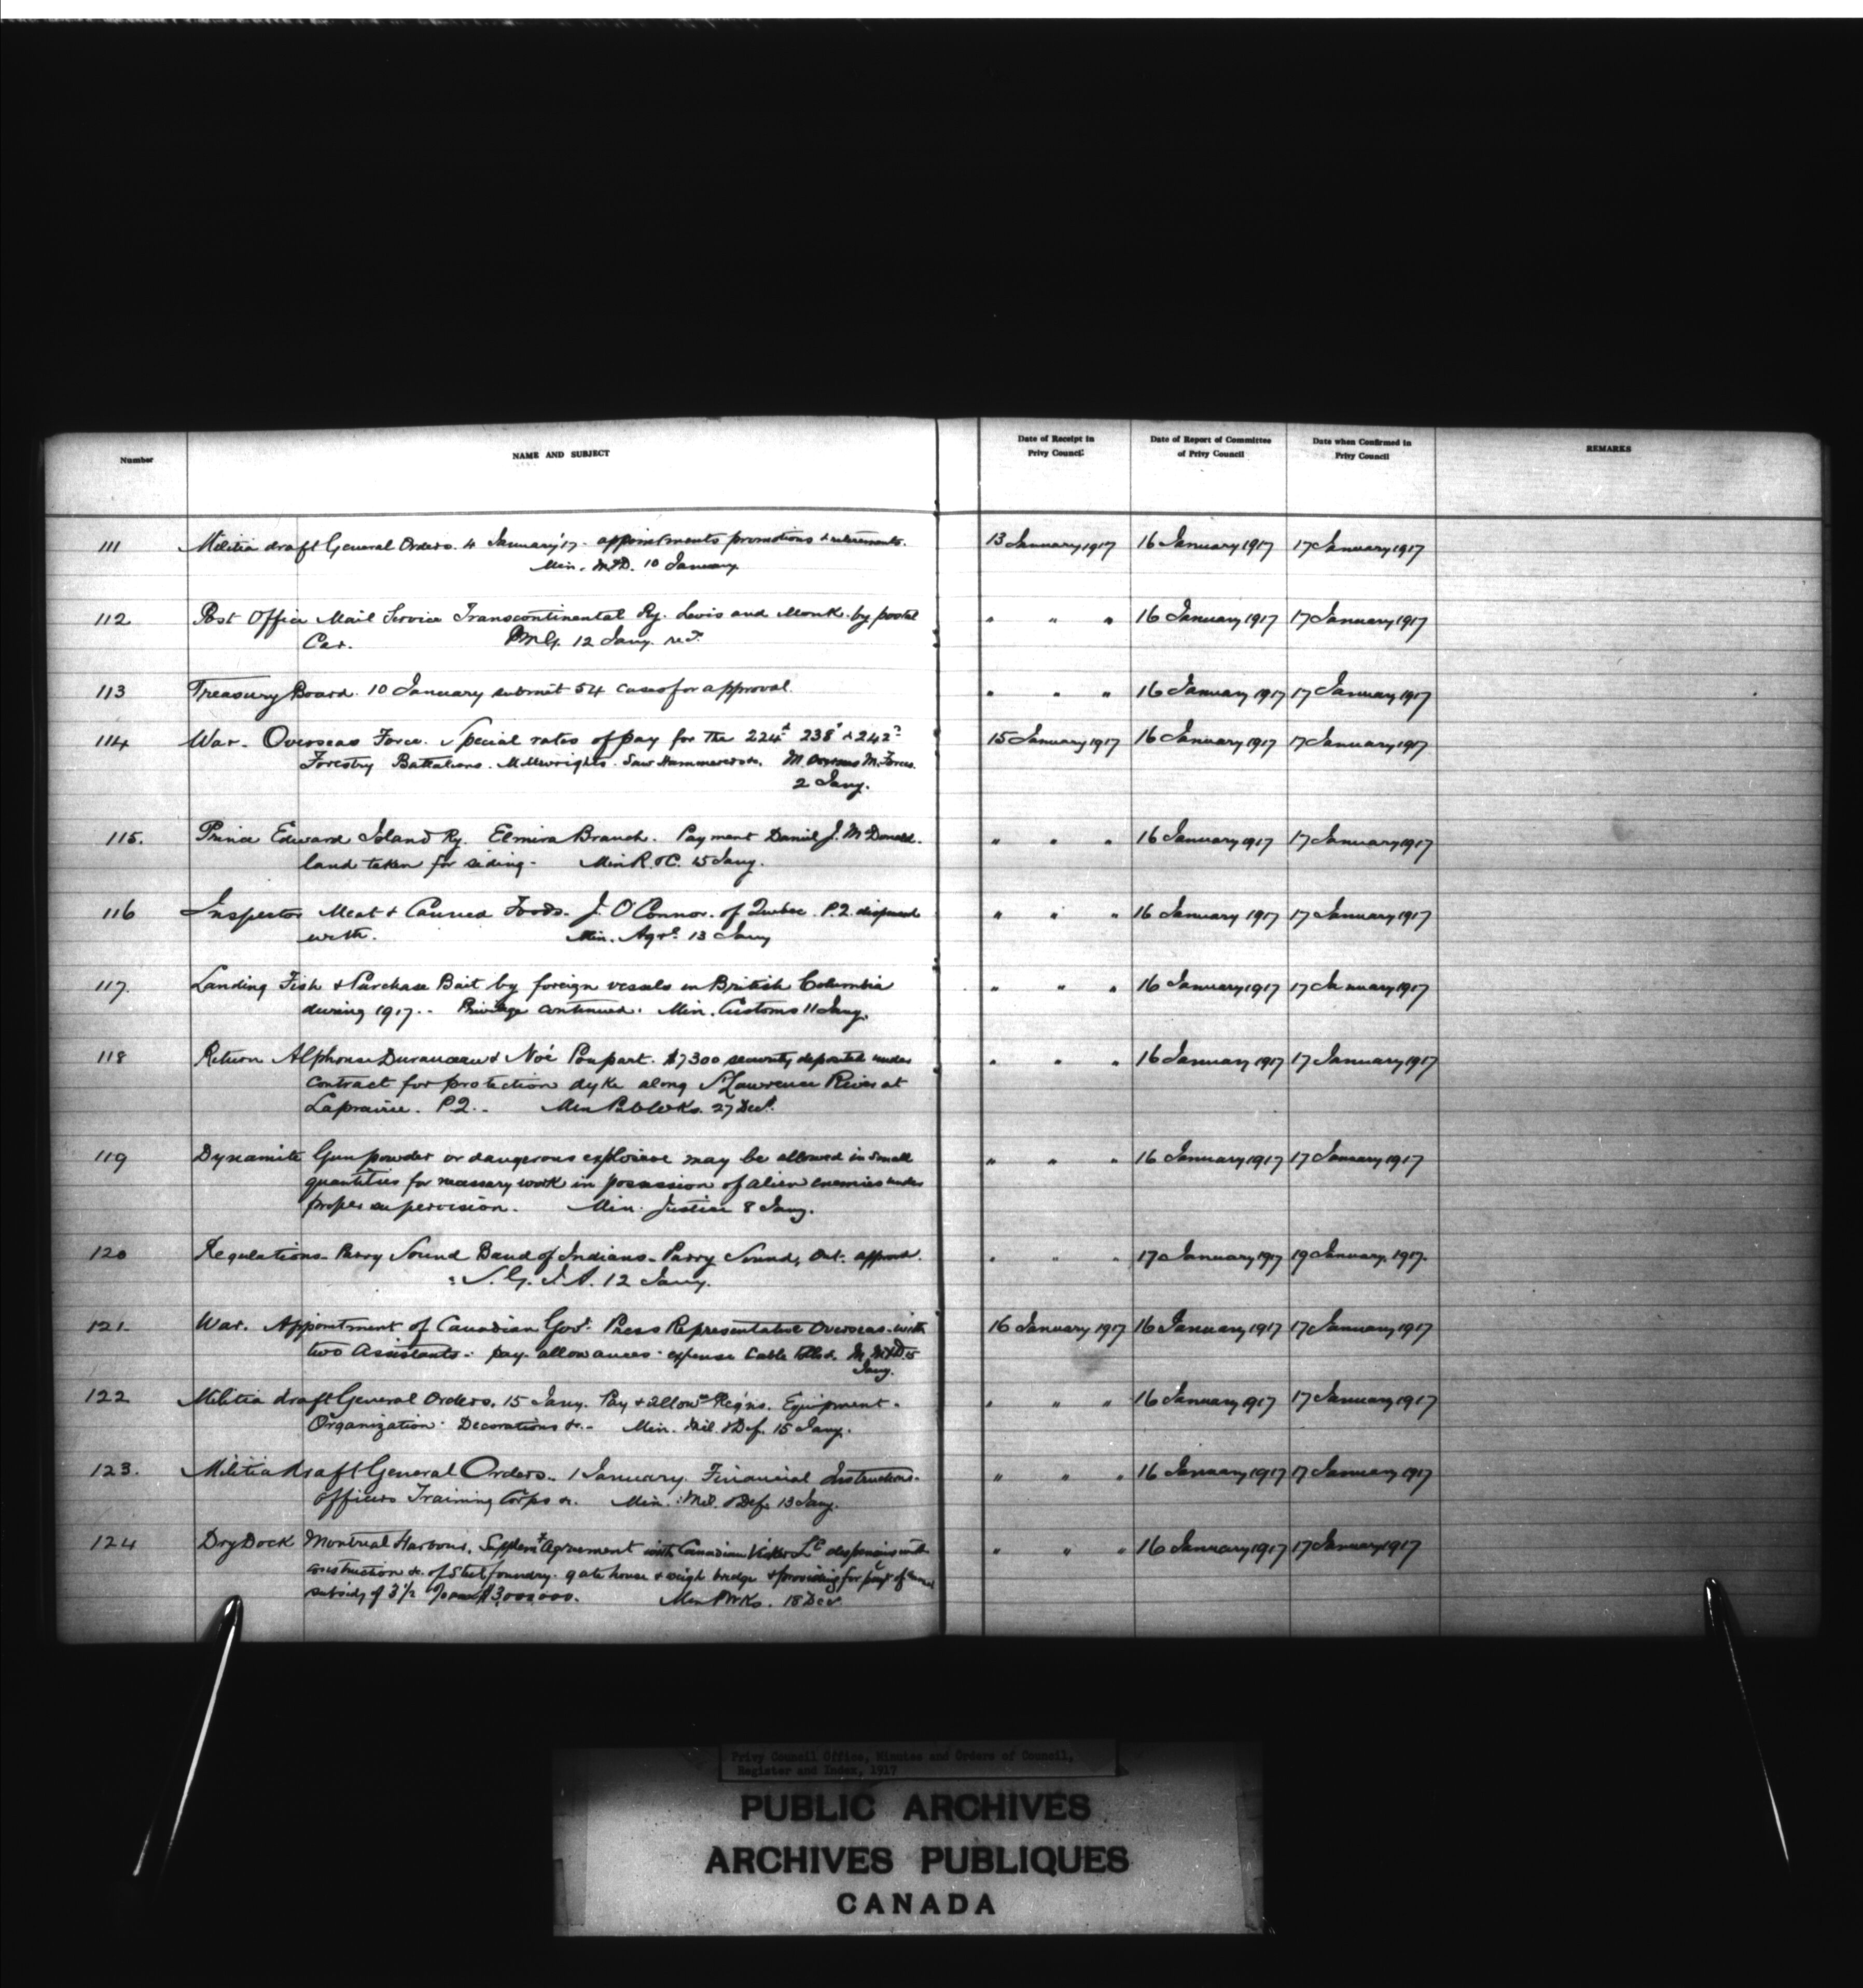 Number
NAME AND SUBJECT
Date of Receipt in
Privy Council
Date of Report of Committee
of Privy Council
Date when Confirmed in
Privy Council
REMARKS
111 Militia draft General Orders. 4 January '17. appointments promotions & retirements. 13 January 1917 16 January 1917 17 January 1917
Min. M&D. 10 January
112 Post Office Mail Service Transcontinental Ry. Levis and Monk. by postal " " " 16 January 1917 17 January 1917
Car. PMG. 12 Jany.
113 Treasury Board. 10 January submit 54 cases for approval. " " " 16 January 1917 17 January 1917
114 War. Overseas Force. Special rates of pay for the 224th 238th & 242d 15 January 1917 16 January 1917 17 January 1917
Forestry Battalions. Millwrights. Saw Hammerers &c. M. Overseas M. Forces.
2 Jany.
115. Prince Edward Island Ry. Elmira Branch. Payment Daniel J. McDonald. " " " 16 January 1917 17 January 1917
land taken for siding. Min R. & C. 15 Jany.
116 Inspector Meat & Canned Foods. J. O'Connor. of Quebec. P.Q. dispensed " " " 16 January 1917 17 January 1917
with. Min. Agrl. 13 Jany
117. Landing Fish & Purchase Bait by foreign vessels in British Columbia " " " 16 January 1917 17 January 1917
during 1917.. Privilege continued. Min. Customs 11 Jany.
118 Return Alphonse Duranceau & Noé Poupart. $7300 security deposited under " " " 16 January 1917 17 January 1917
contract for protection dyke along St Lawrence River at
Laprairie. P.Q.. Min Pub Wks. 27 Decr.
119 Dynamite Gunpowder or dangerous explosive may be allowed in small " " " 16 January 1917 17 January 1917
quantities for necessary work in possession of alien enemies under
proper supervision. Min. Justice 8 Jany.
120 Regulations. Parry Sound Band of Indians. Parry Sound, Ont. approved. " " " 17 January 1917 19 January. 1917.
S. G. I. A. 12 Jany.
121. War. Appointment of Canadian Govt. Press Representative Overseas. with 16 January 1917 16 January 1917 17 January 1917
two Assistants. pay. allowances. expense Cable M. M&D 15
Jany.
122 Militia draft General Orders. 15 Jany. Pay & allowce Reg'ns. Equipment. " " " 16 January 1917 17 January 1917
Organization. Decorations &c.. Min. Mil. & Def. 15 Jany.
123. Militia draft General Orders.. 1 January. Financial Instructions. " " " 16 January 1917 17 January 1917
Officers Training Corps &c. Min. Mil. & Def. 13 Jany.
124 Dry Dock Montreal Harbour. Supplemt Agreement with Canadian Vickers Ld dispensing with " " " 16 January 1917 17 January 1917
construction &c. of Steel foundry. gate house & weigh bridge & providing for payt of
subsidy of 3½ % on $3,000000. Min P Wks. 18 Decr.
Privy Council Office, Minutes and Orders of Council,
Register and Index, 1917
PUBLIC ARCHIVES
ARCHIVES PUBLIQUES
CANADA